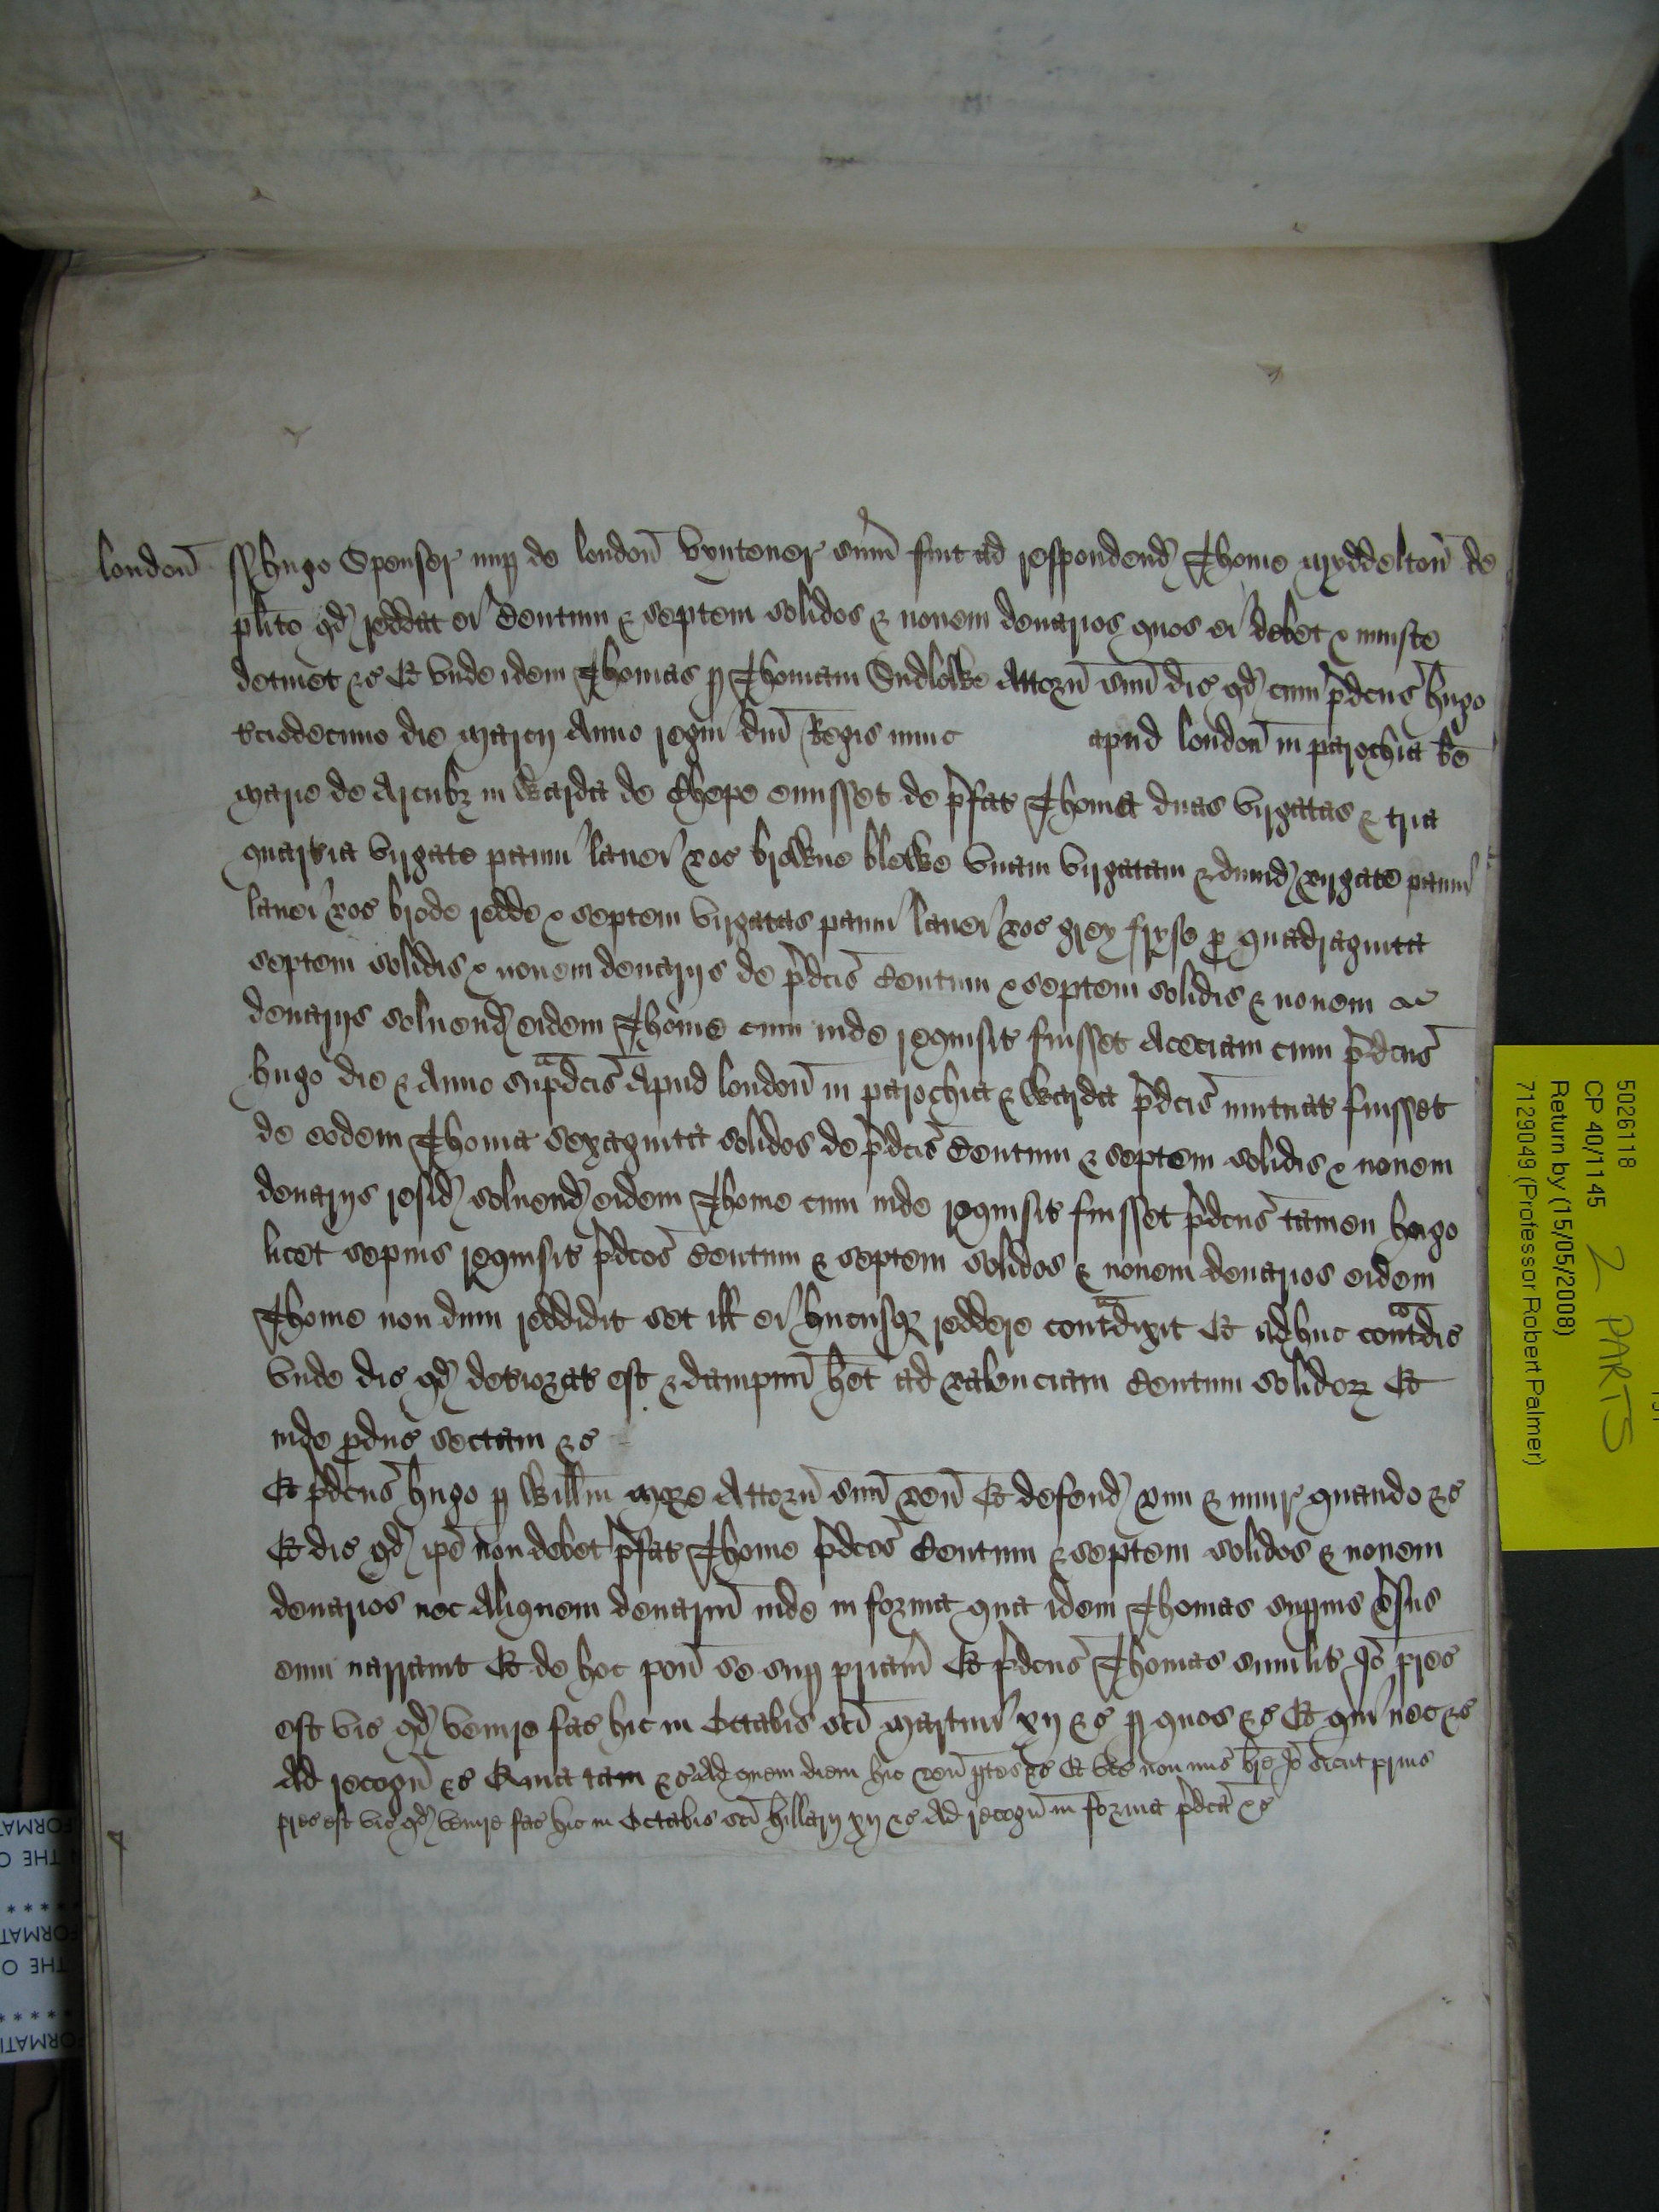 london̄ ss Hugo Spenser nup de london̄ vyntener sūm̄ fuit ad respondend Thome Myddelton̄ de
plīto qd reddat ei Centum & septem solidos & novem denarios quos ei debet & iniuste
detinet &c Et unde idem Thomas p Thomam attorn̄ suū dic qd cum p̄dcus Hugo
terciodecimo die Marcij Anno regni dn̄i Regis nunc apud london̄ in parochia bē
Marie de Arcubz in Warda de Chepe emisset de p̄fat Thoma duas virgatas & tria
quarteria virgate panni lanei voc browne blewke unam virgatam & dimid virgate panni
lanei voc brode redde & septem virgatas panni lanei voc grey fryse p quadraginta
septem solidis & novem denarijs de p̄dcis Centum & septem solidis & novem
denarijs solvend eidem Thome cum inde requisit fuisset Aceciam cum p̄dcus
Hugo die & Anno sup̄dcis apud london̄ in parochia & Warda p̄dcis mutuat fuisset
de eodem Thoma sexaginta solidos de p̄dcis Centum & septem solidis & novem
denarijs resid solvend eidem Thome cum inde requisit fuisset p̄dcus tamen Hugo
licet sepius requisit p̄dcos Centum & septem solidos & novem denarios eidem
Thome non dum reddidit set ill ei hucusqz reddere contradixit Et adhuc contradic
Unde dic qd deteriorat est & dampnū h̄et ad valenciam Centum solidoz Et
inde p̄duc sectam &c
Et p̄dcus Hugo p Will̄m attorn̄ suū ven̄ Et defend vim & iniur quando &c
Et dic qd ip̄e non debet p̄fat Thome p̄dcos Centum & septem solidos & novem
denarios nec aliquem denariū inde in forma qua idem Thomas supius v̄sus
eum narravit Et de hoc pon̄ se sup pr̄iam Et p̄dcus Thomas similit Iō prec
est vic qd venire fac hic in Octabis sc̄i Martini xij &c p quos &c Et qui nec &c
Ad recogn̄ &c Quia tam &c Ad quem diem hic ven̄ ptes &c Et vic non mis br̄e Iō sicut prius
prec est vic qd venire fac hic in Octabis sc̄i Hillarij xij &c Ad recogn̄ in forma p̄dca &c
5026118
CP 40/1145 2 PARTS
Return by (15/05/2008)
7129049 (Professor Robert Palmer)